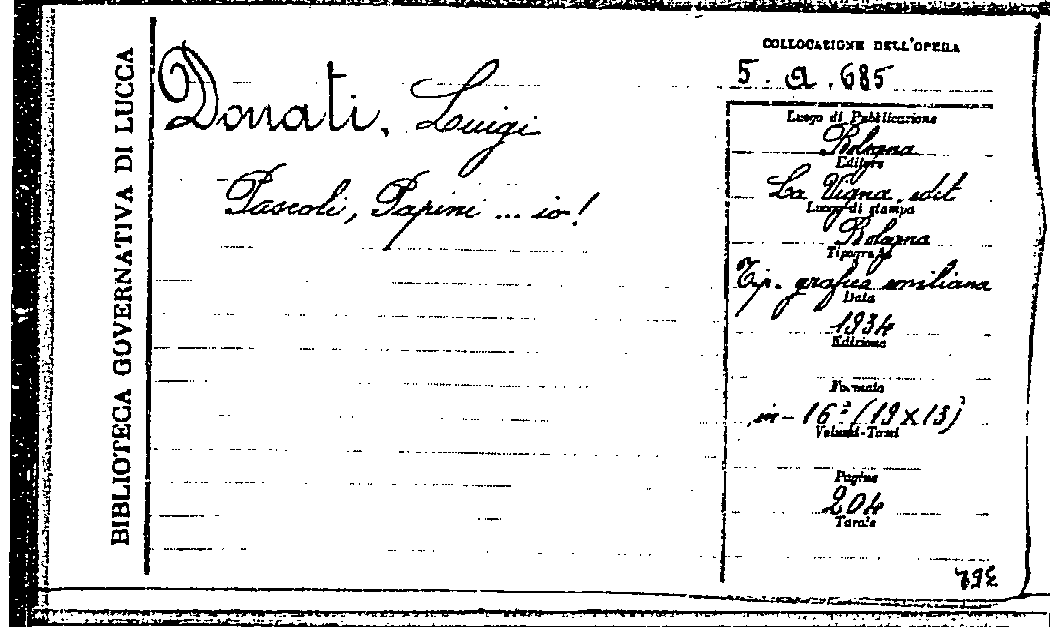 BIBLIOTECA GOVERNATIVA DI LUCCA
Donati, Luigi
Pascoli, Papini ... io!
COLLOCAZIONE DELL'OPERA
5. a. 685
Luogo di Pubblicazione
Bologna
Editore
La Vigna edit
Luogo di stampa
Bologna
Tipografia
Tip. grafica emiliana
Data
1934
Edizione
Formato
in-16° (19x13)
Volumi-Tomi
Pagine
204
Tavole